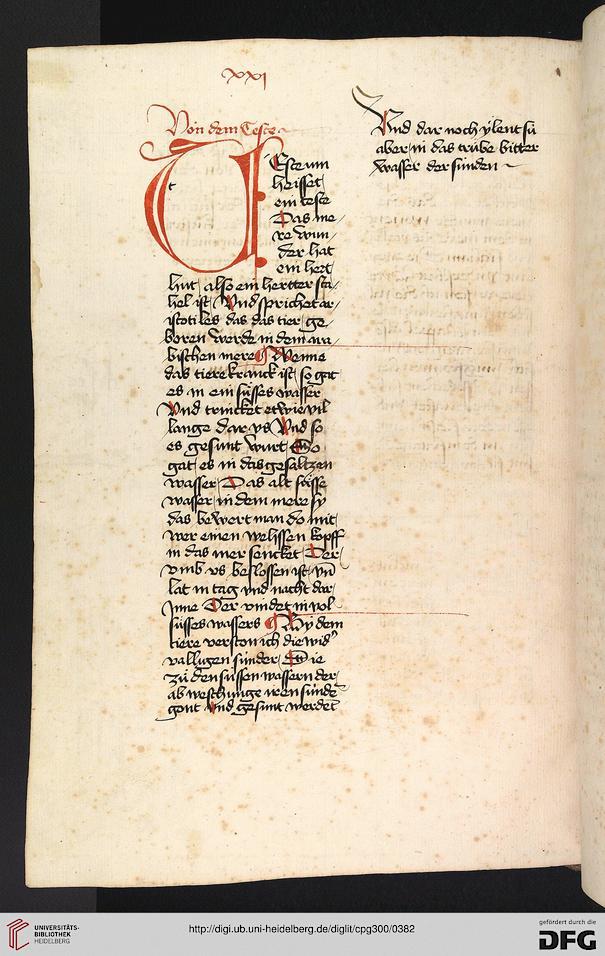 xxi
Von dem Tesce
TEsceum
heisset
ein tesce
Das me/
re wun/
der hat
ein hert
hut / also ein hertter sta/
hel ist / Vnd sprichet ar/
istotiles das das tier / ge/
boren werde in dem ara/
bischen mere ¶ Wenne
das tiere kranck ist / so gat
es in ein süsses wasser
Vnd trincket etwie vil
lange dar vs Vnd so
es gesunt wurt / So
gat es in das gesaltzen
wasser / Das alt süsse
wasser / in dem mere sÿ
das bewert man do mit /
wer einen welissen kopff
in das mer sencket / Der /
vmb vs beslossen ist / vn̄
lat in tag vnd nacht dar /
Jnne Der vindet in vol
süsses wassers ¶ By dem
tiere verston ich die wid'
valligen sünder / Die
zů den süssen wassern der /
ab weschunge iren sünde
gont vnd gesunt werdēt
Vnd dar noch ÿlent sü
aber / in das trübe bitter
wasser der sünden
UNIVERSITÄTS-
BIBLIOTHEK
HEIDELBERG
http://digi.ub.uni-heidelberg.de/diglit/cpg300/0382
gefördert durch die
DFG